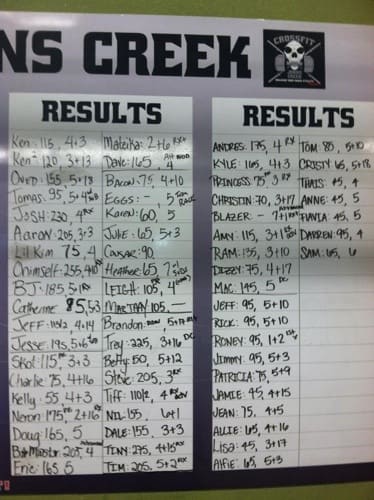 NS CREEK
CROSSFIT
RESULTS
Ken: 115, 4+3
Ken² 120, 3+13
155, 5+18
Tomas. 95, 5+4
JoSH. 230, 4 RX
Aaron. 205, 3+3
Lil Kim 75, 4
BJ: 185, 5 RX
Catherine 85, 53
JEFF. 4+14
Jesse.
Skot: 115, 3+3
Charlie 75, 4+16
Kelly: 55 4+3
Neron 175, 2+16
Doug. 165, 5
205, 4
Eric. 165 5
Mateika. 2+6 RX+
Dave. 165, 4
BACON. 75, 4+10
EGGS: - 5
Karen. 60, 5
Julie. 65, 5+3
Caesar. 90.
Heather. 65,
LEIGH. 105, 4
MARTHA? 105. —
Brandon.
Trey: 225, 3+16 DC
Betty. 50, 5+12
Steve. 205, 3 RX
Tiff: 110/2, 4 RX
NIL 155 6+1
DALE. 155, 3+3
TINY. 275, 4+15 RX
TIM. 205, 5+2 RX
RESULTS
ANDRES: 175, 4 RX
KYLE. 165, 4+3
PRINCESS. 75, 3 RX
CHRISTIN: 70, 3+17
BLAZER. — 7+1
AMY. 115, 3+1
RAM. 135, 3+10
DIZZY: 75, 4+17
MAC. 145, 5 DC
JEFF: 95, 5+10
RICK: 95, 5+10
RONEY: 95, 1+2
JIMMY: 95, 5+3
PATRICIA: 75, 5+9
JAMIE. 45, 4+15
JEAN: 75, 4+5
ALLIE: 65, 4+16
Lisa. 45, 3+17
Alfie. 65, 5+3
TOM: 80, 5+10
CRISTY: 65, 5+18
THAIS: 45, 4
ANNE: 45, 5
FLAVIA: 45, 5
DARREN: 95, 4
SAM: 65, 6